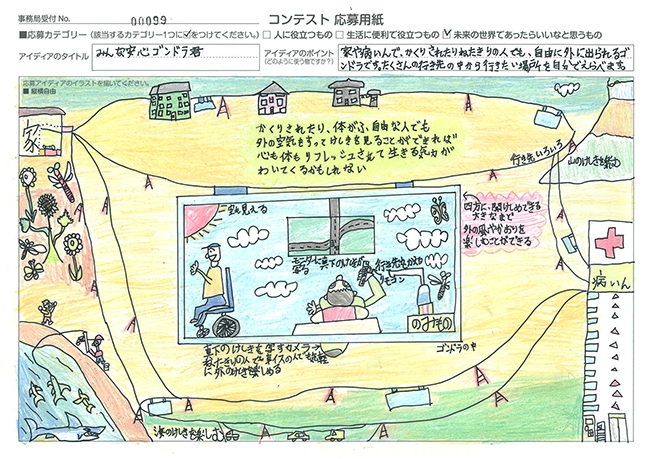 事務局受付 No. 00099
コンテスト 応募用紙
■応募カテゴリー (該当するカテゴリー1つに☑をつけてください。) □ 人に役立つもの □ 生活に便利で役立つもの ☑ 未来の世界であったらいいなと思うもの
アイディアのタイトル みんな安心ゴンドラ君
アイディアのポイント
(どのように使う物ですか?)
家や病いんで、かくりされたりねたきりの人でも、自由に外に出られるゴ
ンドラです。たくさんの行き先の中から行きたい場所を自分でえらべます。
応募アイディアのイラストを描いてください。
■ 縦横自由
家
かくりされたり、体がふ自由な人でも
外の空気をすってけしきを見ることができれば
心も体もリフレッシュされて生きる気力が
わいてくるかもしれない
行き先いろいろ
山のけしきを楽む
空も見える
四方に開けしめできる
大きなまど
外の風やかおりを
楽しむことができる
モニターに真下のけしきが
写る
行き先中かえも
リモコン
のみもの
病いん
ゴンドラの中
真下のけしきを写すカメラ
ねたきりの人でも車イスの人でも
に外のけしきを楽しめる
海のけしきも楽しむ